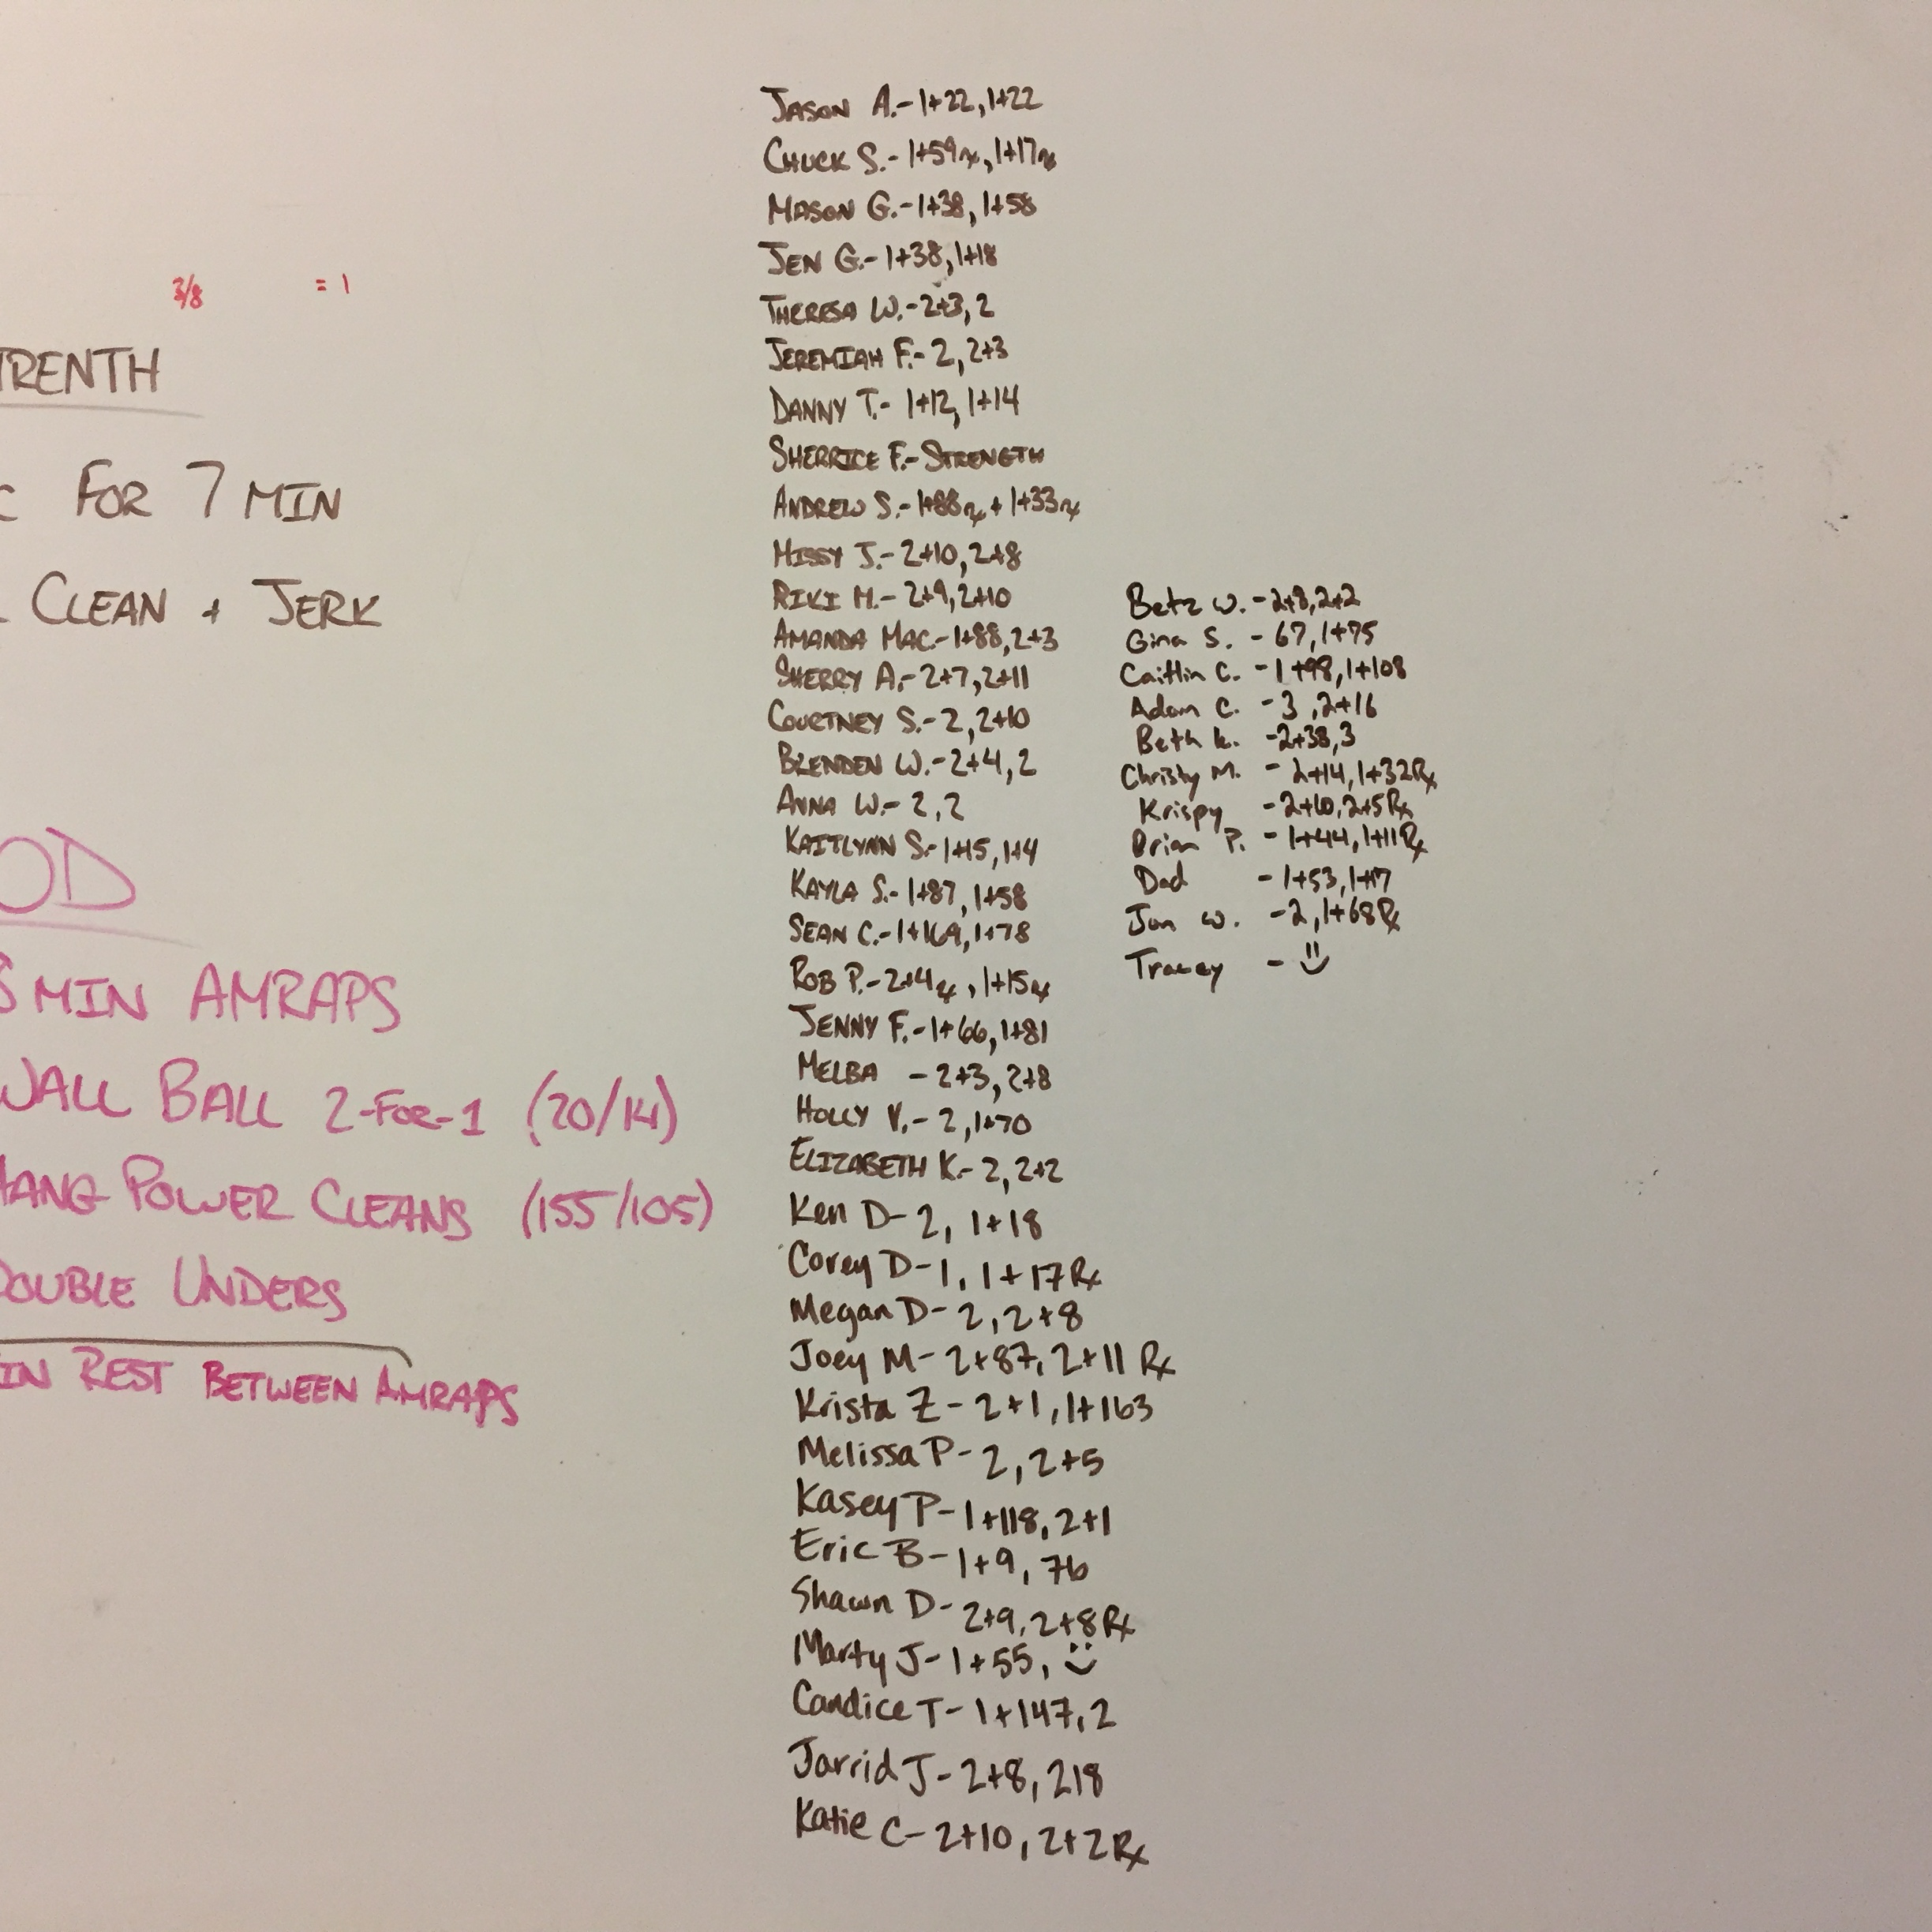 3/8 = 1
TRENTH
C FOR 7 MIN
CLEAN + JERK
OD
5 MIN AMRAPS
WALL BALL 2-FOR-1 (20/14)
HANG POWER CLEANS (155/105)
DOUBLE UNDERS
IN REST BETWEEN AMRAPS
JASON A.- 1+22, 1+22
CHUCK S.- 1+59rx, 1+17rx
MASON G.- 1+38, 1+58
JEN G.- 1+38, 1+18
THERESA W.- 2+3, 2
JEREMIAH F.- 2, 2+3
DANNY T.- 1+12, 1+14
SHERRICE F.- STRENGTH
ANDREW S.- 1+88rx + 1+33rx
MISSY J.- 2+10, 2+8
RIKI M.- 2+9, 2+10
AMANDA MAC.- 1+88, 2+3
SHERRY A.- 2+7, 2+11
COURTNEY S.- 2, 2+10
BRENDEN W.- 2+4, 2
ANNA W.- 2, 2
KAITLYNN S.- 1+15, 1+4
KAYLA S.- 1+87, 1+58
SEAN C.- 1+169, 1+78
ROB P.- 2+4rx, 1+15rx
JENNY F.- 1+66, 1+81
MELBA - 2+3, 2+8
HOLLY V.- 2, 1+70
ELIZABETH K.- 2, 2+2
Ken D- 2, 1+18
Corey D- 1, 1+17 Rx
Megan D- 2, 2+8
Joey M- 2+87, 2+11 Rx
Krista Z- 2+1, 1+163
Melissa P- 2, 2+5
Kasey P- 1+118, 2+1
Eric B- 1+9, 76
Shawn D- 2+9, 2+8 Rx
Marty J- 1+55, :)
Candice T- 1+147, 2
Jarrid J- 2+8, 218
Katie C- 2+10, 2+2 Rx
Betz W. - 2+8, 2+2
Gina S. - 67, 1+75
Caitlin C. - 1+98, 1+108
Adam C. - 3, 2+16
Beth k. - 2+38, 3
Christy M. - 2+14, 1+32 Rx
Krispy - 2+10, 2+5 Rx
Brian P. - 1+44, 1+11 Rx
Dad - 1+53, 1+17
Jon W. - 2, 1+68 Rx
Tracey - :)